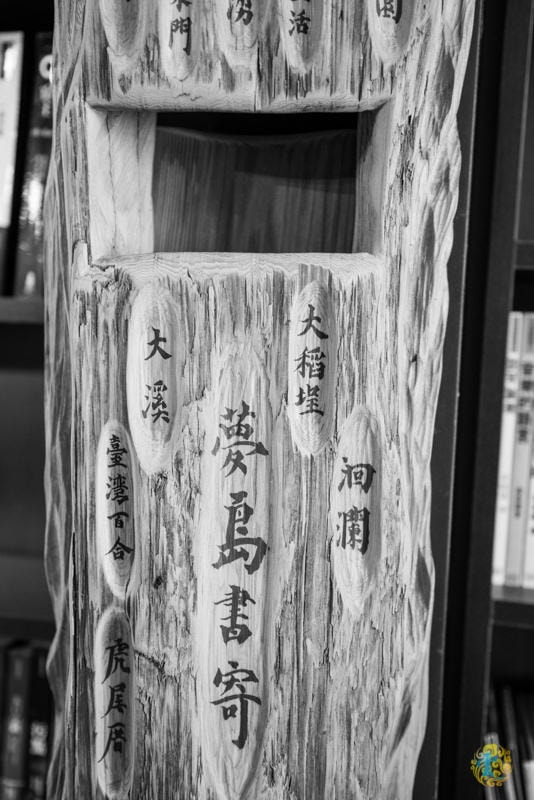 活
門
洄瀾
大稻埕
夢島書寄
大溪
臺灣百合
虎尾厝